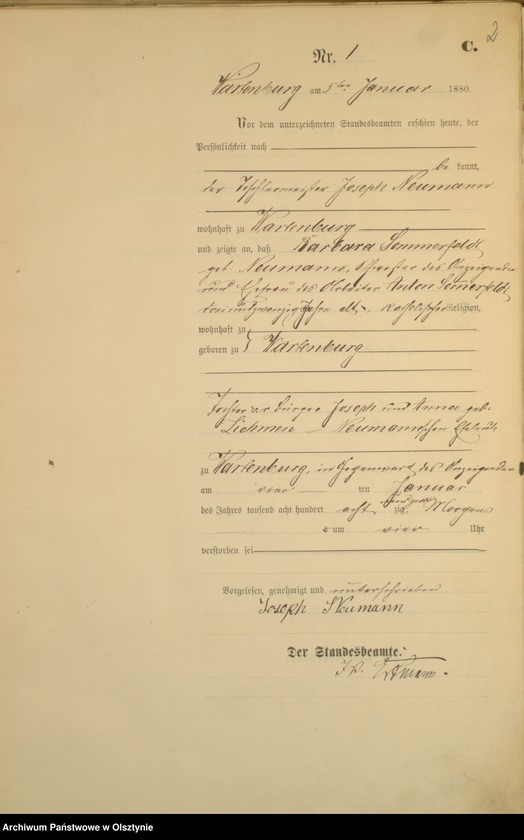 2
C.
Nr. 1
Wartenburg am 5ten Januar 1880.
Vor dem unterzeichneten Standesbeamten erschien heute, der
Persönlichkeit nach
be kannt,
der Tischlermeister Joseph Neumann
wohnhaft zu Wartenburg
und zeigte an, daß Barbara Sommerfeld,
geb. Neumann, Schwester des Anzeigenden
und Ehefrau des Arbeiter Anton Sommerfeld,
dreiundzwanzig Jahre alt, katholischer Religion,
wohnhaft zu
geboren zu } Wartenburg
Tochter der Bürger Joseph und Anna geb.
Neumannschen Eheleute
zu Wartenburg, in Gegenwart des Anzeigenden
am vier ten Januar
des Jahres tausend acht hundert acht und zig, Morgens
um vier Uhr
verstorben sei
Vorgelesen, genehmigt und unterschrieben
Joseph Neumann
Der Standesbeamte.
Archiwum Państwowe w Olsztynie